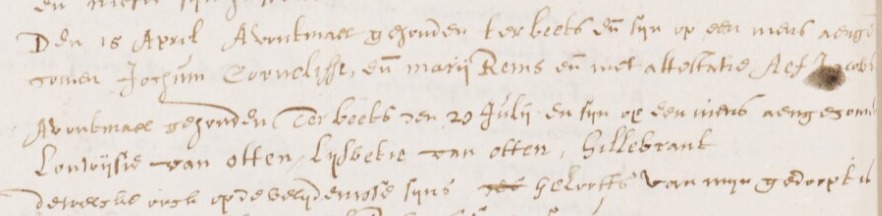 Den 15 April Avontmael gehouden ter beets en sijn op een nieus aenge
comen Jochum Cornelisse, en marij Rems en met attestatie Aef Jacobs
Avontmael gehouden Ter beets den 20 Julij en sijn op een nieus aengecomen
Lowijsie van otten, lijsbetie van otten, Hillebrant
dewelcke oock op de belijdenisse sijns geloofs van mijn gedoopt is